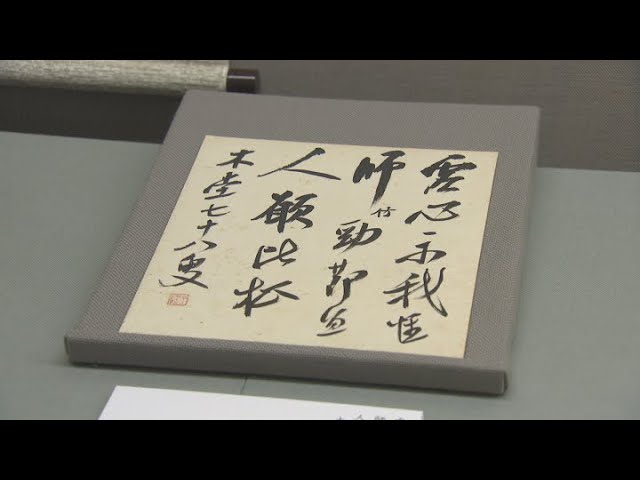 虚心示我惟
師竹勁節宜
人願比松
木堂七十八叟